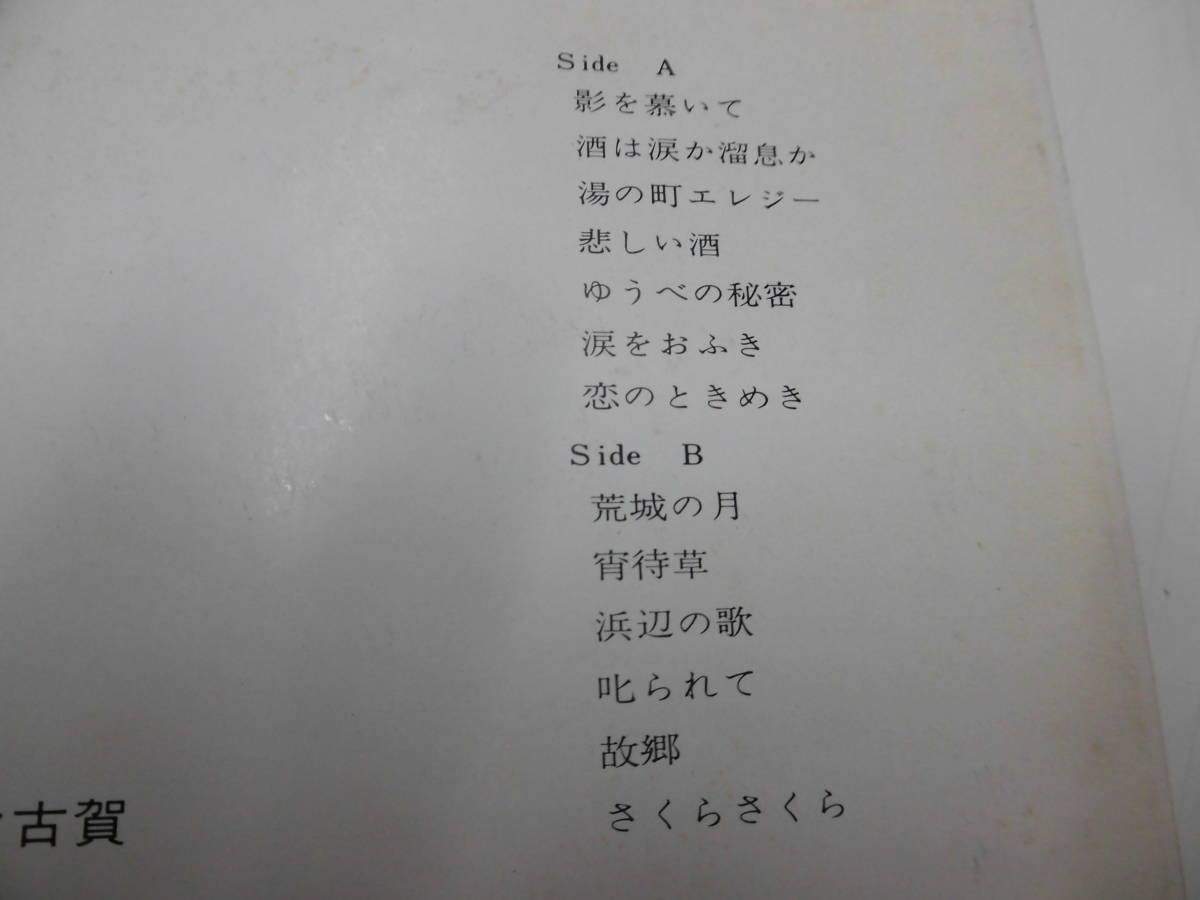 Side A
影を慕いて
酒は涙か溜息か
湯の町エレジー
悲しい酒
ゆうべの秘密
涙をおふき
恋のときめき
Side B
荒城の月
宵待草
浜辺の歌
叱られて
故郷
さくらさくら
古賀